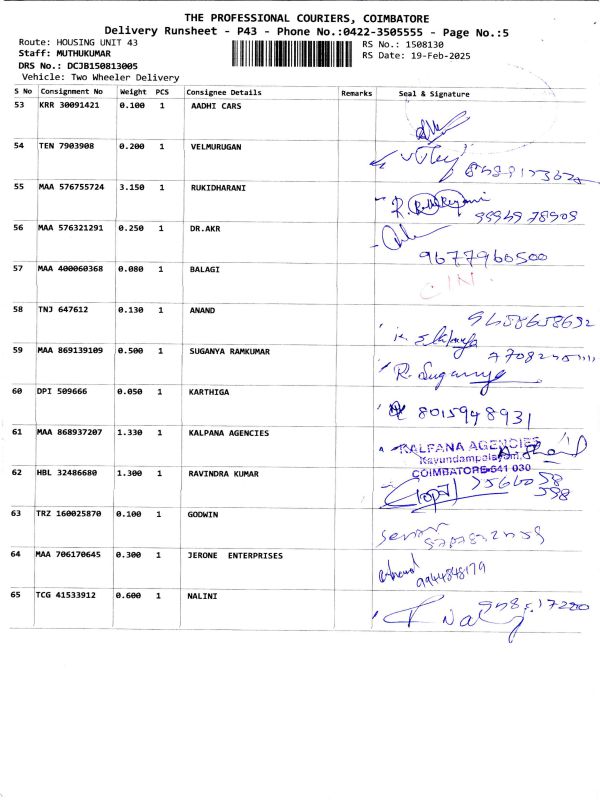 THE PROFESSIONAL COURIERS, COIMBATORE
Delivery Runsheet - P43 - Phone No.:0422-3505555 - Page No.:5
Route: HOUSING UNIT 43 RS No.: 1508130
Staff: MUTHUKUMAR RS Date: 19-Feb-2025
DRS No.: DCJB150813005
Vehicle: Two Wheeler Delivery
S No Consignment No Weight PCS Consignee Details Remarks Seal & Signature
53 KRR 30091421 0.100 1 AADHI CARS
54 TEN 7903908 0.200 1 VELMURUGAN
55 MAA 576755724 3.150 1 RUKIDHARANI
56 MAA 576321291 0.250 1 DR.AKR
9677960500
57 MAA 400060368 0.080 1 BALAGI
CIN
58 TNJ 647612 0.130 1 ANAND
59 MAA 869139109 0.500 1 SUGANYA RAMKUMAR
R. Suganya
60 DPI 509666 0.050 1 KARTHIGA
8015948931
61 MAA 868937207 1.330 1 KALPANA AGENCIES
KALPANA AGENCIES
Kavundampalayam,
COIMBATORE-641 030
62 HBL 32486680 1.300 1 RAVINDRA KUMAR
63 TRZ 160025870 0.100 1 GODWIN
64 MAA 706170645 0.300 1 JERONE ENTERPRISES
9944848179
65 TCG 41533912 0.600 1 NALINI